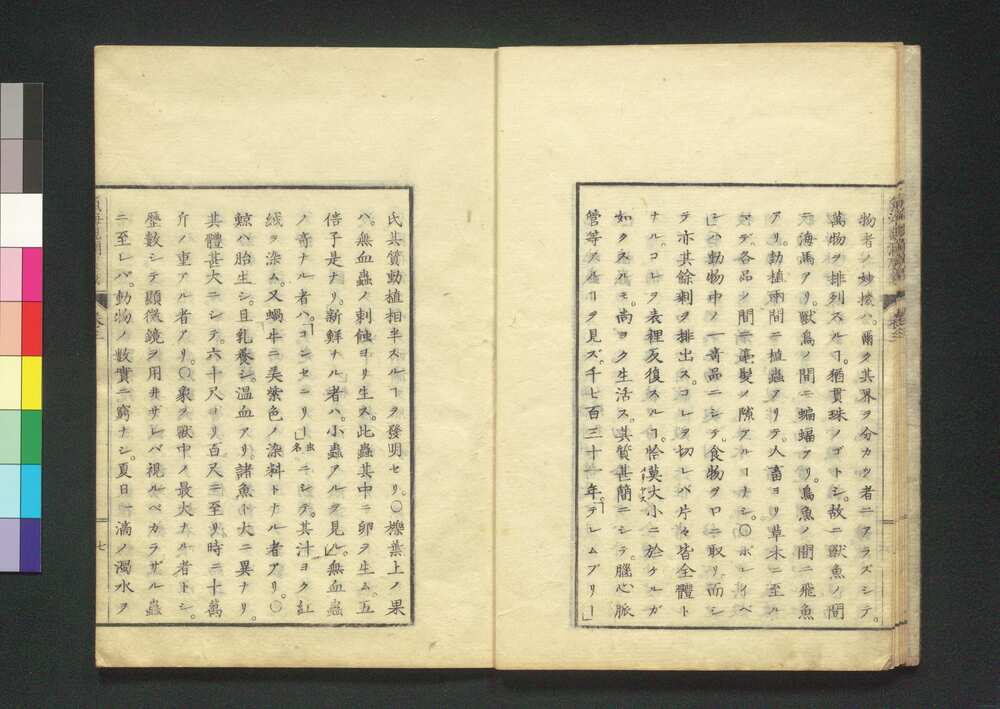 物者ノ妙機ハ。爾ク其界ヲ分カツ者ニアラズシテ。
萬物ヲ排列スルヿ。猶貫珠ノゴトシ。故ニ獸魚ノ間
ニ海馬アリ。獸鳥ノ間ニ蝙蝠アリ。鳥魚ノ間ニ飛魚
アリ。動植兩間ニ植蟲アリテ。人畜ヨリ草木ニ至ル
マデ。各品ノ間ニ毫髮ノ隙アルヿナシ。〇ポレイペ
ハ動物中ノ一奇品ニシテ。食物ヲ口ニ取リ。而シ
テ亦其餘剩ヲ排出ス。コレヲ切レバ片々皆全體ト
ナル。コレヲ表裡反復スルヿ。恰莫大小ニ於ケルガ
如クスルモ。尚ヨク生活ス。其質甚簡ニシテ。腦心脈
管等アルヿヲ見ズ。千七百三十一年。「テレムブリー」
氏其質動植相半スルヿヲ發明セリ。〇櫟葉上ノ果
ハ。無血蟲ノ刺蝕ヨリ生ス。此蟲其中ニ卵ヲ生ム。五
倍子是ナリ。新鮮ナル者ハ。小蟲アルヲ見ル。無血蟲
ノ奇ナル者ハ。「コシセニリー」虫名ニシテ。其汁ヨク紅
絨ヲ染ム。又蝸牛ニ美紫色ノ染料トナル者アリ。〇
鯨ハ胎生シ。且乳養シ。温血アリ。諸魚ト大ニ異ナリ。
其體甚大ニシテ。六十尺ヨリ百尺ニ至リ。時ニ十萬
斤ノ重アル者アリ。〇象ヲ獸中ノ最大ナル者トシ。
歷數シテ顯微鏡ヲ用井ザレバ視ルベカラザル蟲
ニ至レバ。動物ノ數實ニ窮ナシ。夏日一滴ノ濁水ヲ
卷之三
七